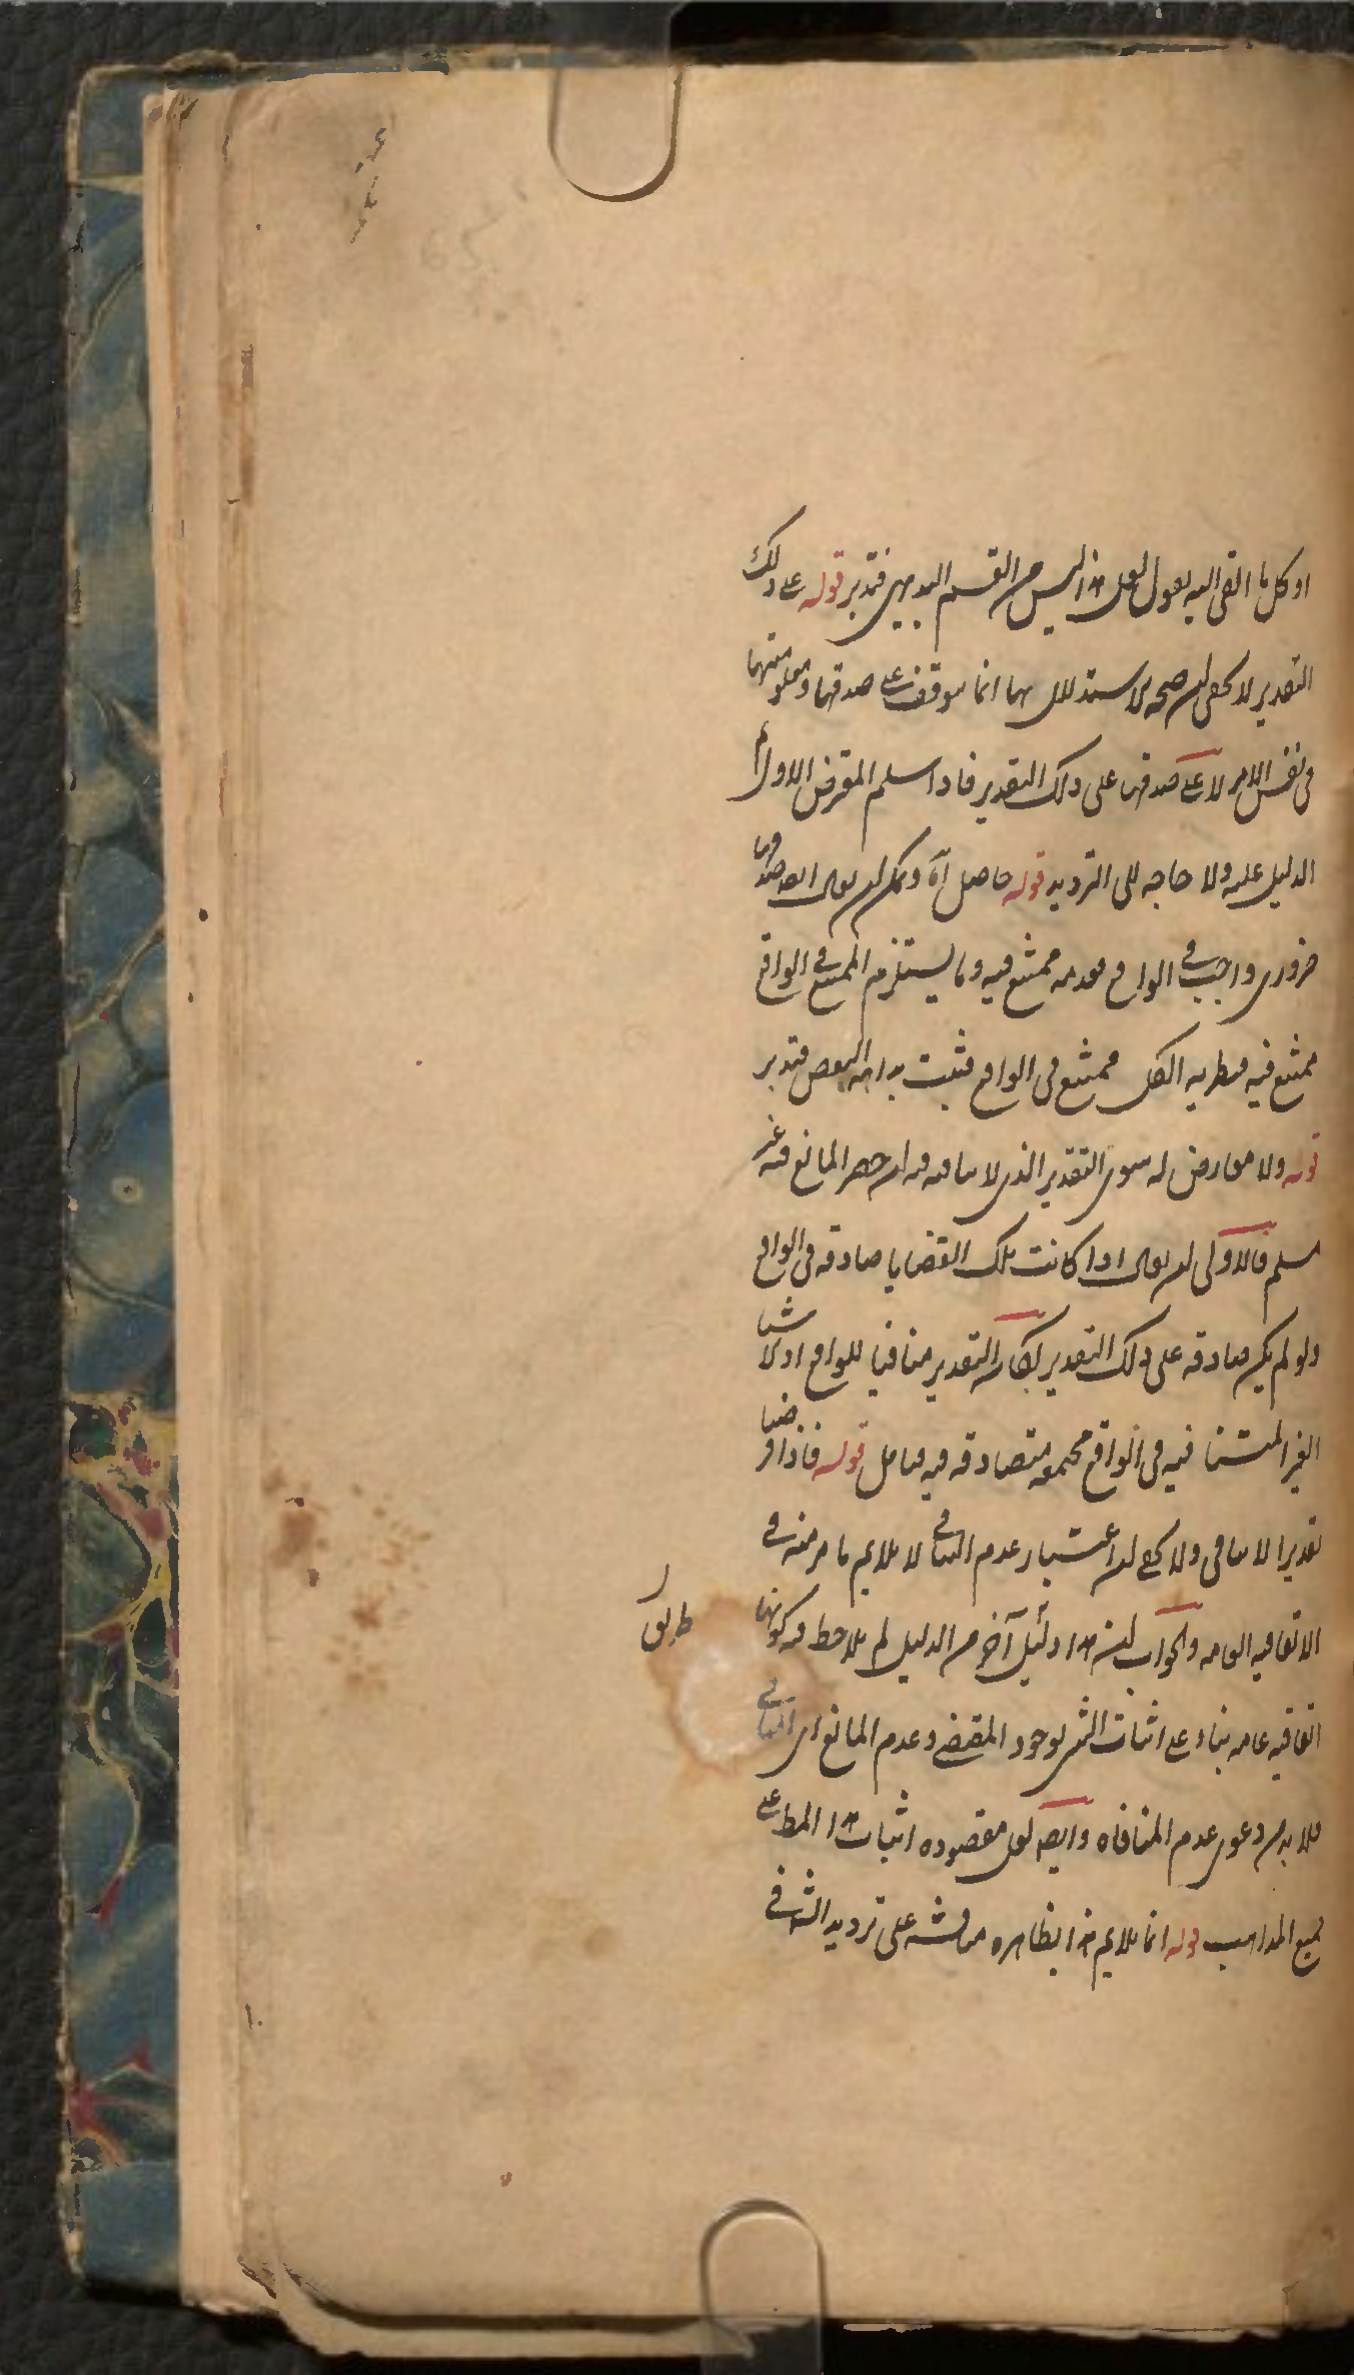 او كل ما القى اليه يقول لعل هذا ليس من القسم البديهى فتدبر قوله على ذلك
التقدير لا يخفى ان صحه الاستدلال بها انما يتوقف على صدقها ومعلوميتها
فى نفس الامر لا على صدقها على ذلك التقدير فاذا سلم المعترض الاول تم
الدليل عليه ولا حاجه الى الترديد قوله حاصل آه ويمكن ان يقال
ضرورى واجب فى الواقع فعدمه ممتنع فيه وما يستلزم الممتنع فى الواقع
ممتنع فيه فنظرية الكل ممتنع فى الواقع فثبت بداهه البعض فتدبر
قوله ولا معارض له سوى التقدير الذى لا ينافيه فيه ان حصر المانع فيه غير
مسلم فالاولى ان يقال اذا كانت تلك القضايا صادقه فى الواقع
ولو لم يكن صادقه على ذلك التقدير لكان التقدير منافيا للواقع اذ الاشيا
الغير المتنافيه فى الواقع مجتمعه متصادقه فيه فتامل قوله فاذا فرضنا
تقديرا لا ينافى ولا يخفى ان اعتبار عدم التنافى لا يلايم ما مر منه فى
الاتفاقيه العامه والجواب ان هذا دليل آخر من الدليل لم يلاحظ فيه كونها
اتفاقيه عامه بناء على اثبات الشى لوجود المقتضى وعدم المانع اى المنافى
فلا بد من دعوى عدم المنافاه وايضا لعل مقصوده اثبات هذا المط على
جميع المذاهب قوله انما يلايم هذا بظاهره مناقشه على ترديد الش فى